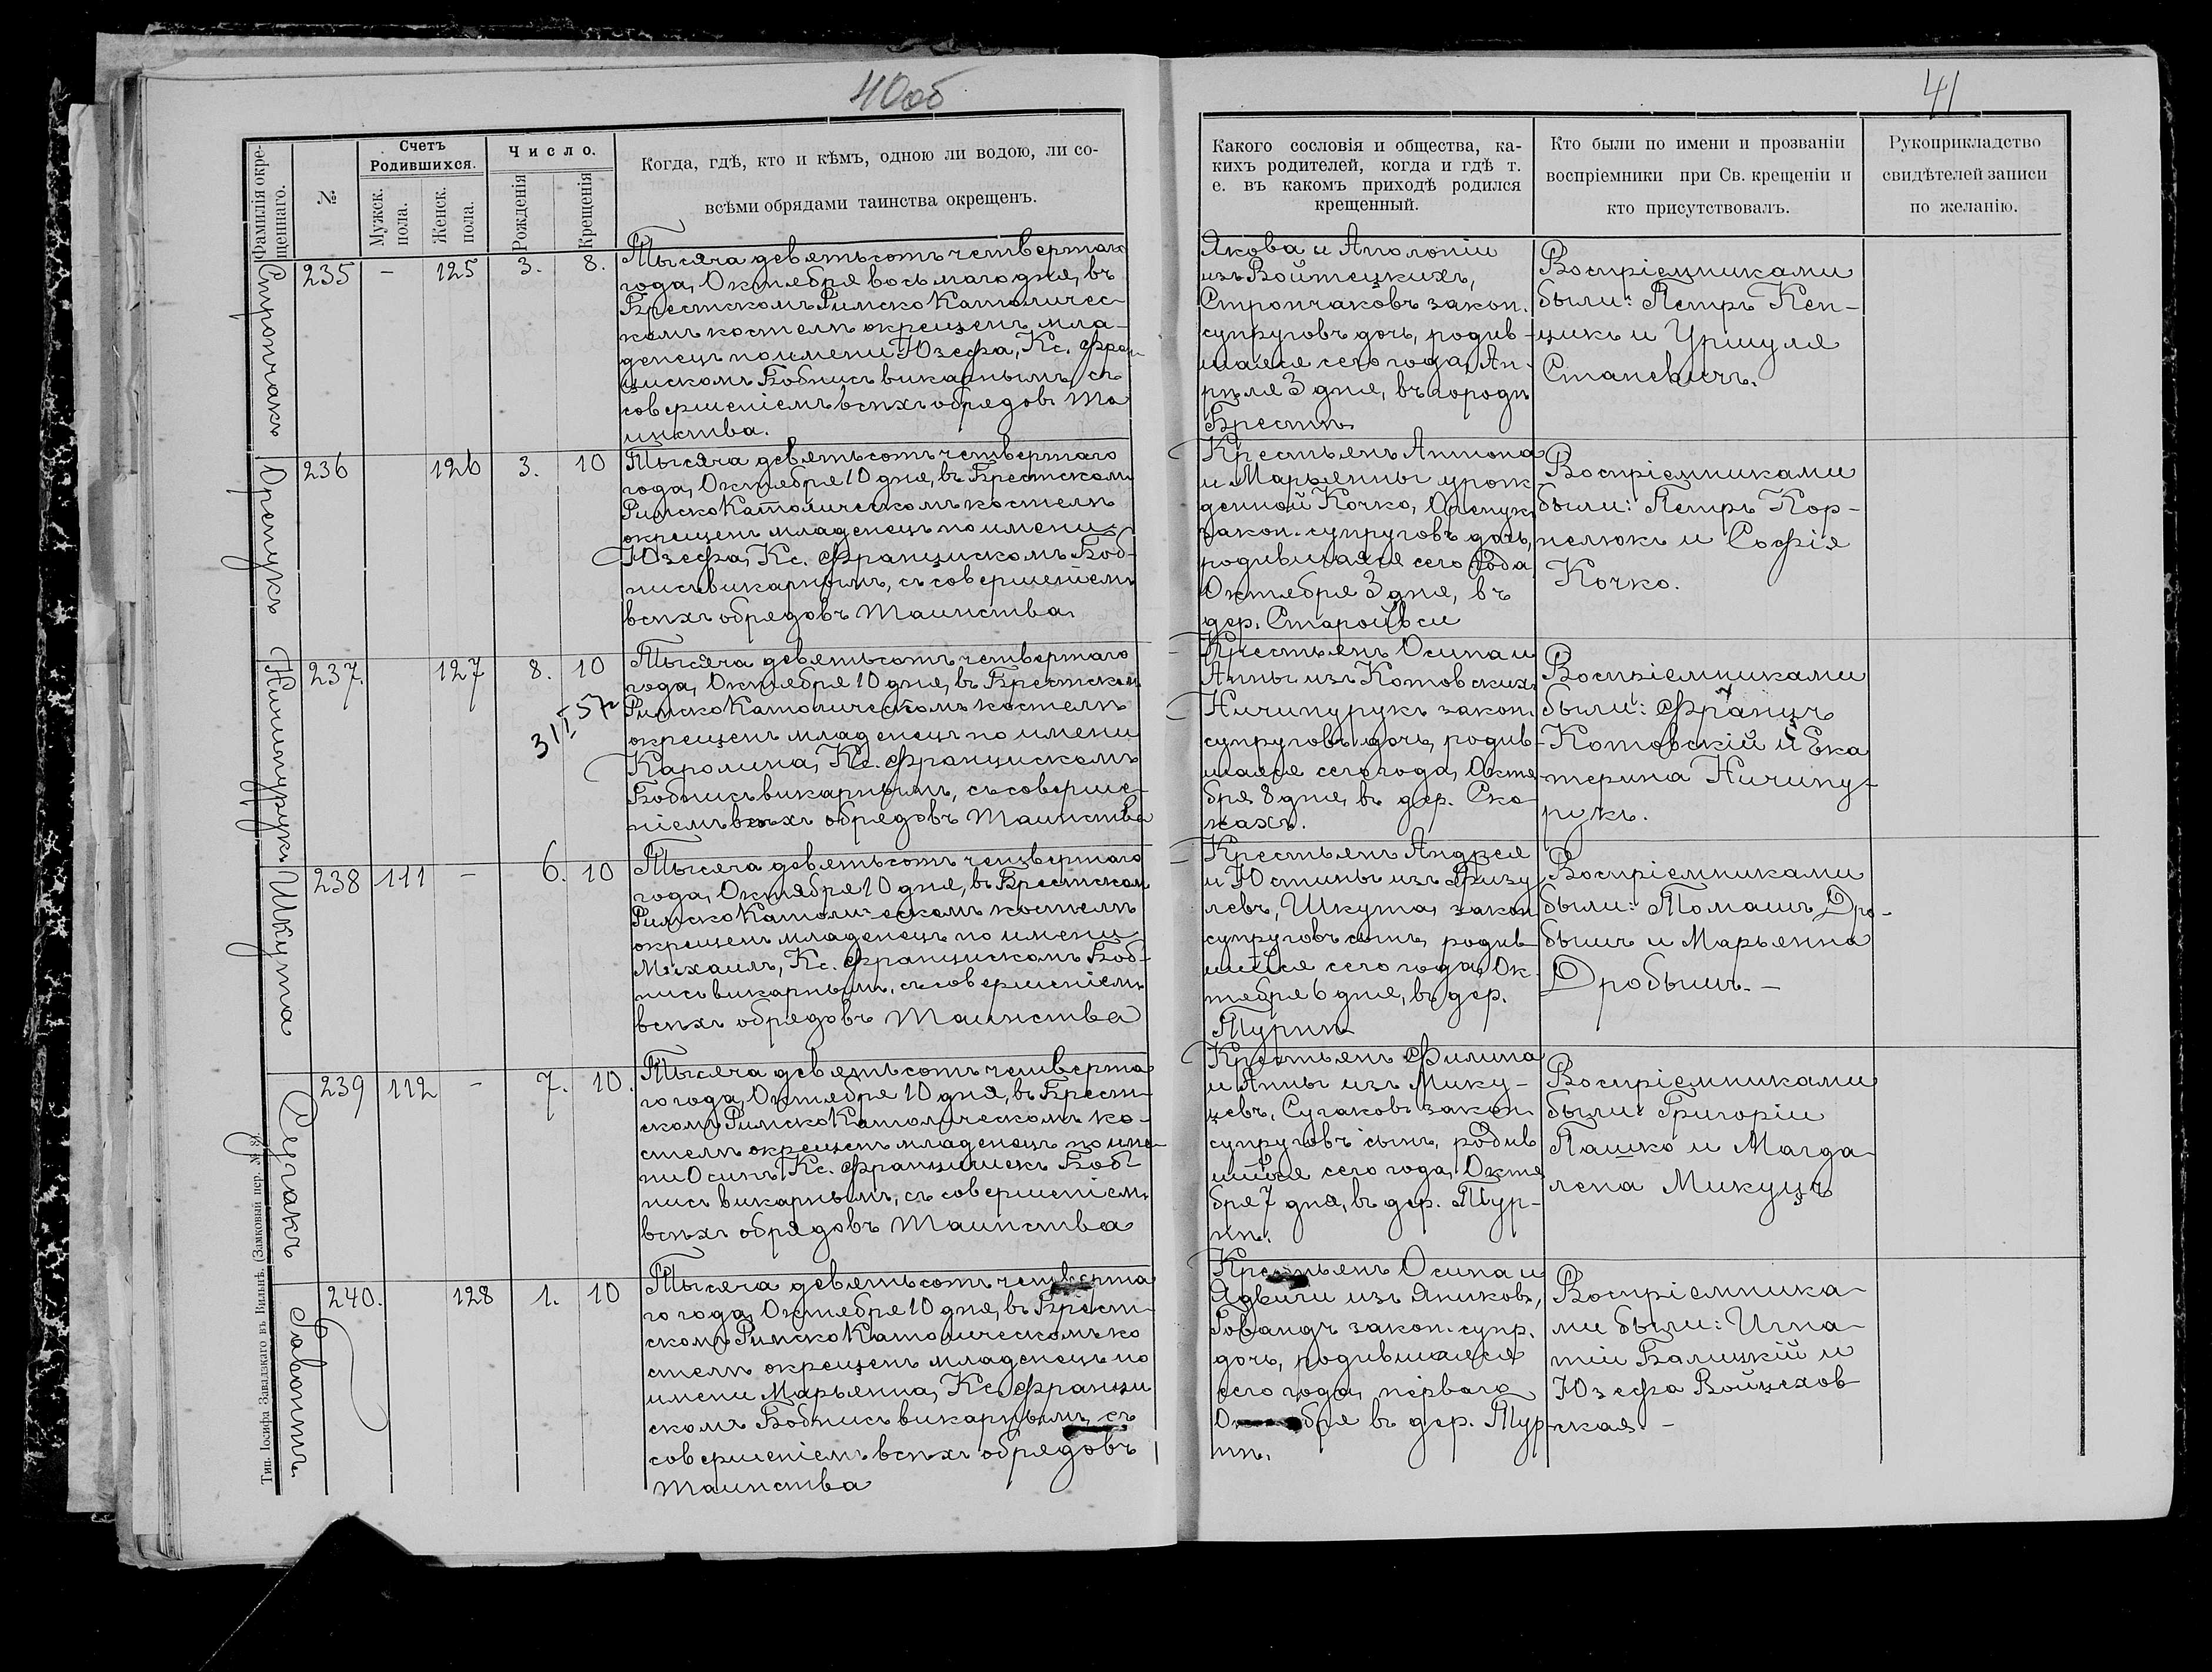 40об
41
Фамилія окре-
щеннаго.
№
Счетъ
Родившихся.
Мужск.
пола.
Женск.
пола.
Число.
Рожденія
Крещенія
Когда, гдѣ, кто и кѣмъ, одною ли водою, ли со-
всѣми обрядами таинства окрещенъ.
Какого сословія и общества, ка-
кихъ родителей, когда и гдѣ т.
е. въ какомъ приходѣ родился
крещенный.
Кто были по имени и прозваніи
воспріемники при Св. крещеніи и
кто присутствовалъ.
Рукоприкладство
свидѣтелей записи
по желанію.
Стрончакъ
235 – 125 3. 8.
Тысяча девятьсотъ четвертаго
года, Октября восьмаго дня, въ
Брестскомъ Римско Католичес-
комъ костелѣ окрещенъ мла-
денецъ по имени Юзефа, Кс. Фран-
цискомъ Бобнисъ викарнымъ, съ
совершеніемъ всѣхъ обрядовъ Та
инства.
Якова и Аполоніи
изъ Войтецкихъ,
Строичаковъ закон.
супруговъ дочь, родив-
шаяся сего года, Ап-
рѣля 3 дня, въ городѣ
Брестѣ
Воспріемниками
были: Петръ Кен-
цикъ и Уршуля
Станевичъ.
Орепукъ
236 126 3. 10
Тысяча девятьсотъ четвертаго
года, Октября 10 дня, въ Брестскомъ
Римско Католическомъ костелѣ
окрещенъ младенецъ по имени
Юзефа, Кс. Францискомъ Боб-
нисъ викарнымъ, съ совершеніемъ
всѣхъ обрядовъ Таинства.
Крестьянъ Антона
и Марьянны урож
денной Кочко, Орепукъ
закон. супруговъ дочь,
родившаяся сего года
Октября 3 дня, въ
дер. Старойвси
Воспріемниками
были: Петръ Кор-
нелюкъ и Софія
Кочко.
Ничипурукъ
237. 127 8. 10
31/I 57г
Тысяча девятьсотъ четвертаго
года, Октября 10 дня, въ Брестскомъ
Римско Католическомъ костелѣ
окрещенъ младенецъ по имени
Каролина, Кс. Францискомъ
Бобнисъ викарнымъ, съ соверше-
ніемъ всѣхъ обрядовъ Таинства
Крестьянъ Осипа и
Анны изъ Котовскихъ
Ничипурукъ закон.
супруговъ дочь, родив-
шаяся сего года, Октя
бря 8 дня, въ дер. Ско-
кахъ.
Воспріемниками
были: Францъ
Котовскій и Ека
терина Ничипу-
рукъ.
Шкута
238 111 – 6. 10
Тысяча девятьсотъ четвертаго
года, Октября 10 дня, въ Брестском
Римско Католическомъ костелѣ
окрещенъ младенецъ по имени
Михаилъ, Кс. Францискомъ Боб-
нисъ викарнымъ, съ совершеніемъ
всѣхъ обрядовъ Таинства
Крестьянъ Андрея
и Юстины изъ Физу
левъ, Шкута, закон
супруговъ сынъ, родив
шійся сего года, Ок-
тября 6 дня, въ дер.
Турнѣ
Воспріемниками
были: Томашъ Дро-
бышъ и Марьянна
Дробышъ. –
Сугакъ
239 112 – 7. 10.
Тысяча девятьсотъ четверта
го года, Октября 10 дня, въ Брест-
скомъ Римско Католическомъ ко-
стелѣ окрещенъ младенецъ по име-
ни Осипъ, Кс. Францишекъ Боб-
нисъ викарнымъ, съ совершеніемъ
всѣхъ обрядовъ Таинства
Крестьянъ Филипа
и Анны изъ Мику-
цевъ, Сугаковъ закон.
супруговъ сынъ, родив
шійся сего года, Октя
бря 7 дня, въ дер. Тур-
нѣ.
Воспріемниками
были: Григоріи
Пашко и Магда-
лена Микуцъ
240. 128 1. 10
Тысяча девятьсотъ четверта
го года, Октября 10 дня, въ Брест-
скомъ Римско Католическомъ ко
стелѣ окрещенъ младенецъ по
имени Марьянна, Кс. Франци
скомъ Бобнисъ викарнымъ, съ
совершеніемъ всѣхъ обрядовъ
Таинства
Крестьянъ Осипа и
Ядвиги изъ Яниковъ,
закон. супр.
дочь, родившаяся
сего года, перваго
Октября въ дер. Тур-
нѣ.
Воспріемника-
ми были: Игна-
тіи Балицкій и
Юзефа Войцехов
ская. –
Тип. Іосифа Завадзкаго въ Вильнѣ. (Замковый пер. № 8).